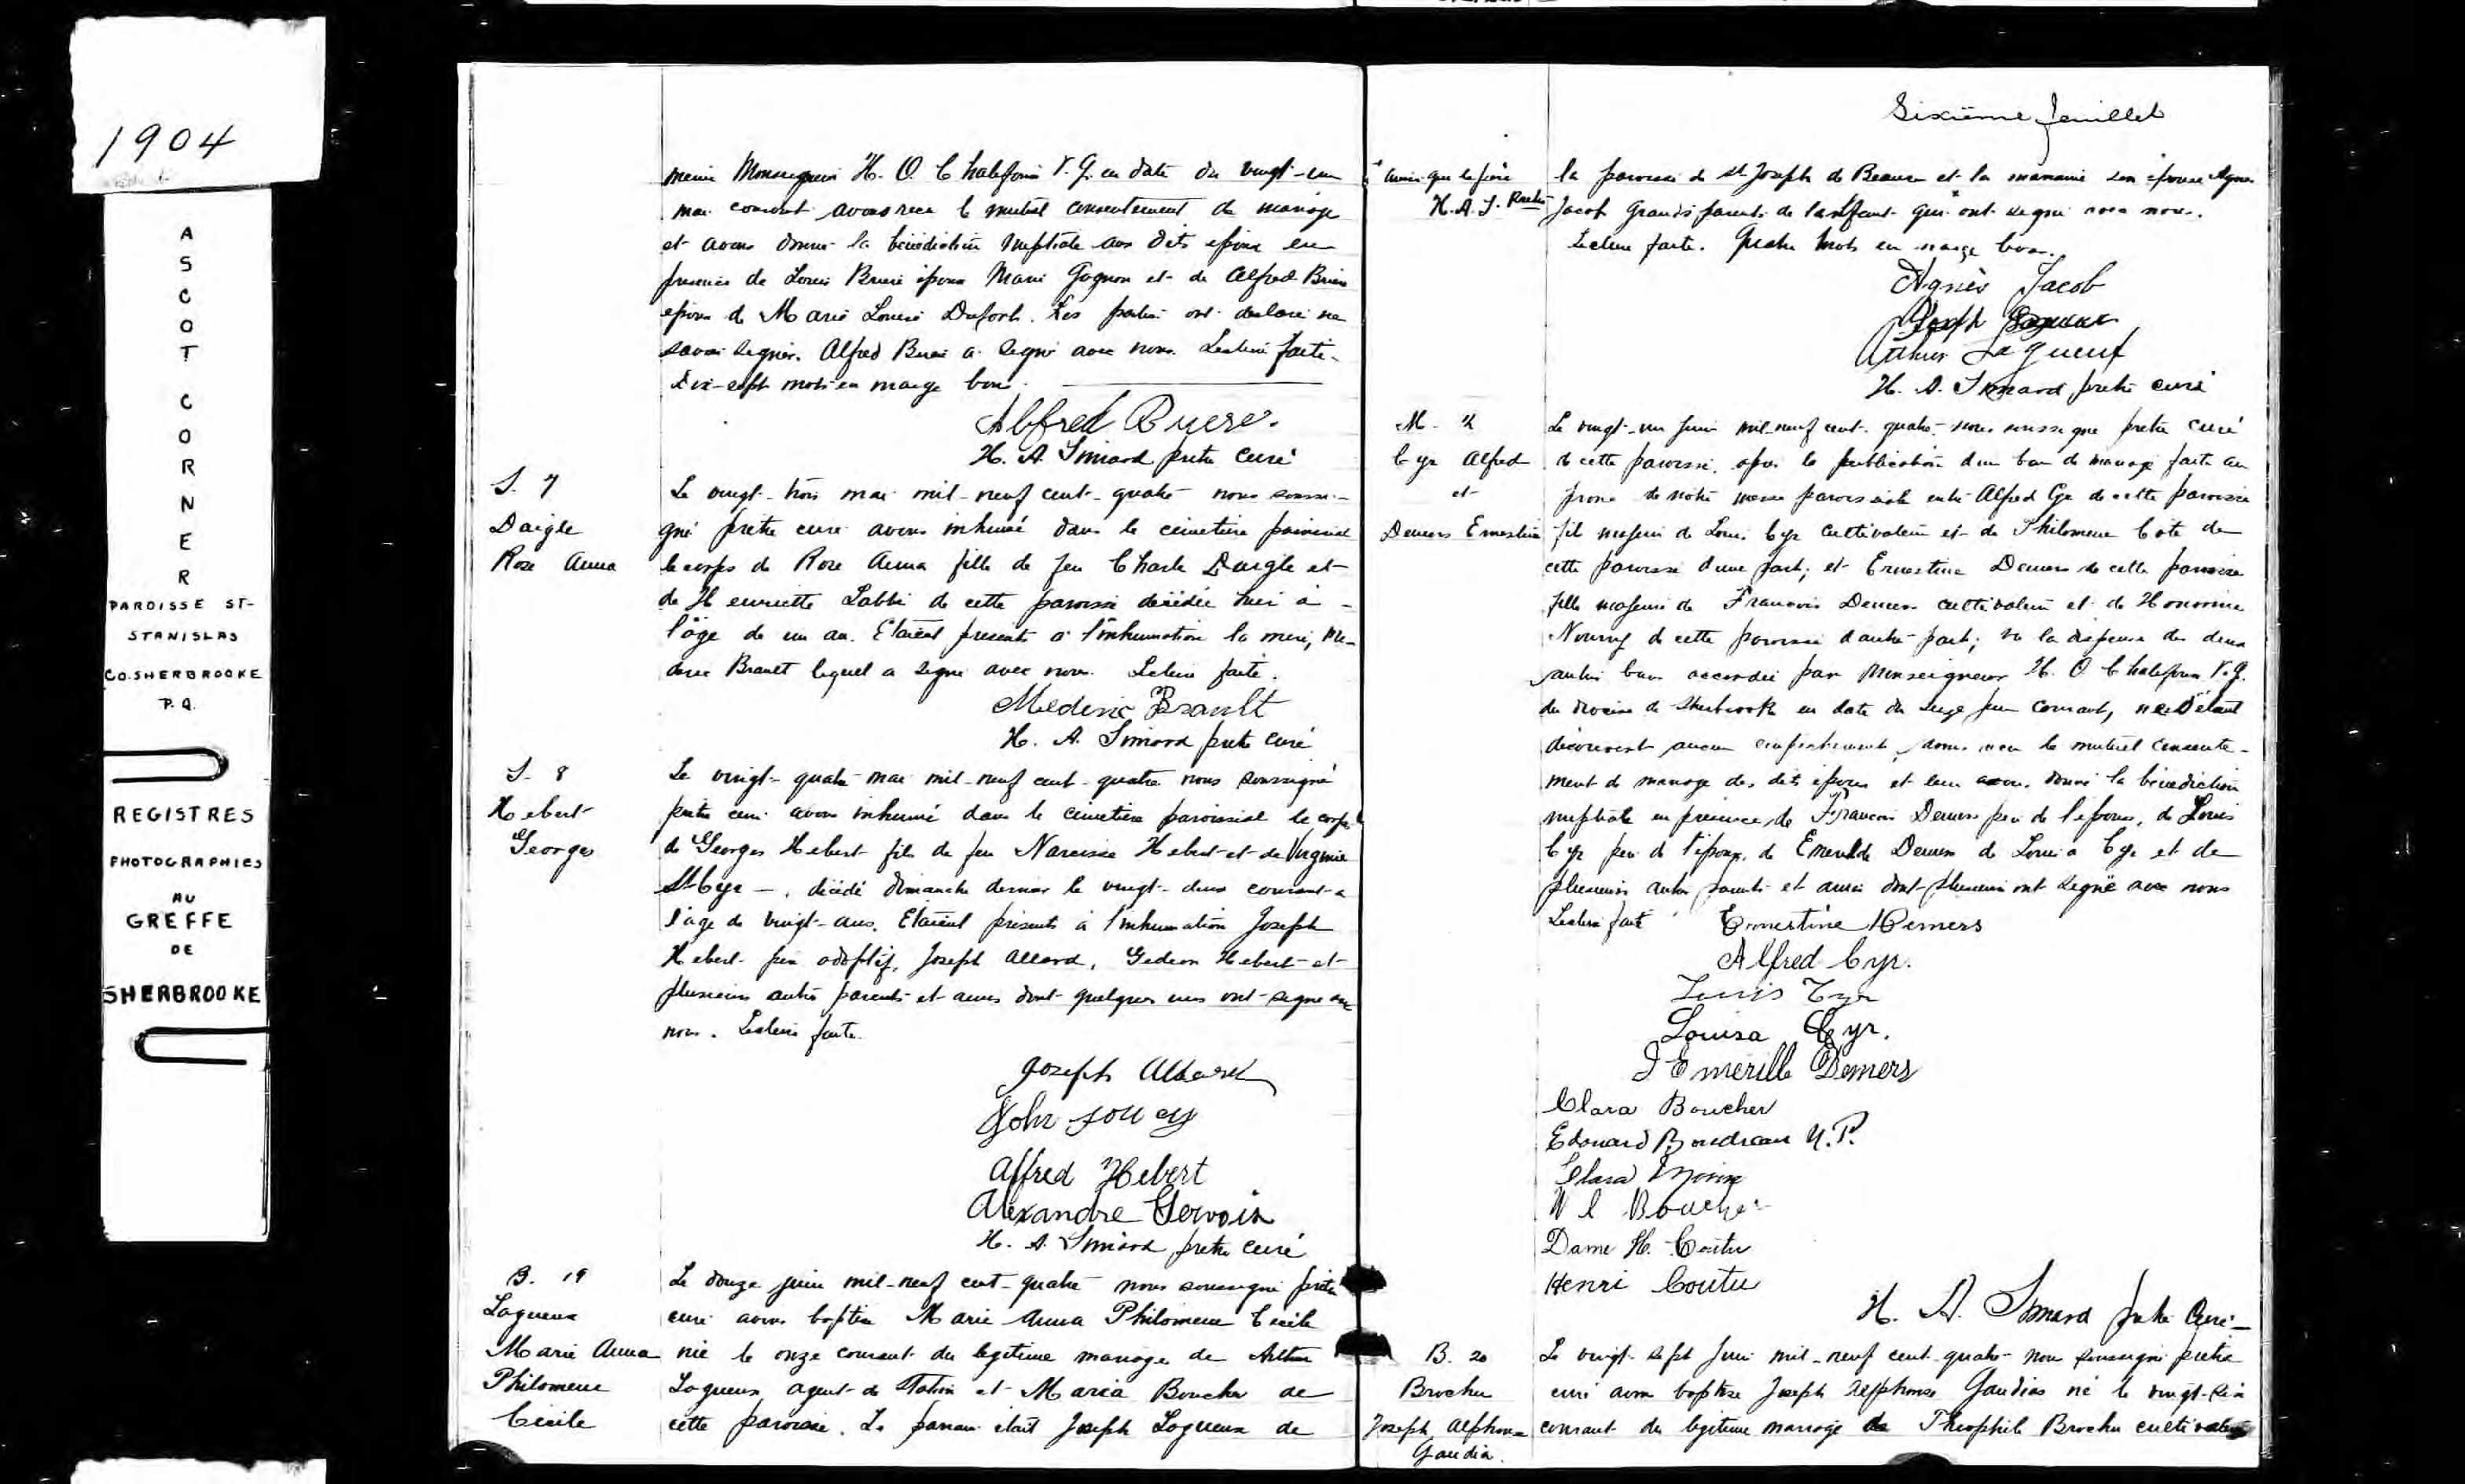 1904
ASCOT CORNER
PAROISSE ST-
STANISLAS
CO. SHERBROOKE
P.Q.
REGISTRES
PHOTOGRAPHIES
AU
GREFFE
DE
SHERBROOKE
H. O. Chalifoux V. G. en date du vingt-un
mai courant avons recu le mutuel consentement de mariage
et avons donné la bénédiction nuptiale aux dits époux en
presence de Louis époux Marie Gagnon et de Alfred
époux de Marie Louise Les parties ont déclaré ne
savoir signer. Alfred a signé avec nous. Lecture faite.
Dix-sept mots en marge bons.
Alfred
H. A. Simard ptre curé
S. 7
Daigle
Rose Anna
Le vingt-trois mai mil-neuf cent-quatre nous soussi-
gné prêtre curé avons inhumé dans le cimetière paroissial
le corps de Rose Anna fille de feu Charle Daigle et
de Henriette Labbé de cette paroisse décédée hier à
l'âge de un an. Etaient presents à l'inhumation la mere, Me-
deric Brault lequel a signé avec nous. Lecture faite.
Mederic Brault
H. A. Simard ptre curé
S. 8
Hebert
Georges
Le vingt-quatre mai mil-neuf cent-quatre nous soussigné
prêtre curé avons inhumé dans le cimetière paroissial le corps
de Georges Hebert fils de feu Narcisse Hebert et de Virginie
St Cyr —, décédé dimanche dernier le vingt-deux courant a
l'age de vingt-ans. Etaient présents à l'inhumation Joseph
Hebert père adoptif, Joseph Allard, Gedeon Hebert et
plusieurs autres parents et amis dont quelques uns ont signé avec
nous. Lecture faite.
Joseph Allard
John
Alfred Hebert
Alexandre Gervais
H. A. Simard prêtre curé
B. 19
Lagueux
Marie Anna
Philomene
Cécile
Le douze juin mil-neuf cent-quatre nous soussigné prêtre
curé avons baptisé Marie Anna Philomene Cécile
née le onze courant du légitime mariage de Arthur
Lagueux agent de station et Maria Boucher de
cette paroisse. Le parrain était Joseph Lagueux de
Sixième feuillet
ainsi que le père
H. A. S. Ptre
la paroisse de St Joseph de Beauce et la marraine son épouse Agnes
Jacob Grands parents de l'enfant qui ont signé avec nous.
Lecture faite. Quatre mots en marge bons.
Agnès Jacob
Joseph Lagueux
Arthur Lagueux
H. A. Simard prêtre curé
M. 2
Cyr Alfred
et
Demers Ernestine
Le vingt-un juin mil-neuf cent-quatre nous soussigné prêtre curé
de cette paroisse, après la publication d'un ban de mariage faite au
prone de notre messe paroissiale entre Alfred Cyr de cette paroisse
fils majeur de Louis Cyr cultivateur et de Philomene Coté de
cette paroisse d'une part; et Ernestine Demers de cette paroisse
fille majeure de Francois Demers cultivateur et de Honorine
de cette paroisse d'autre part; vu la dispense des deux
autres bans accordée par Monseigneur H. O. Chalifoux V. G.
du diocèse de Sherbrooke en date du seize juin courant, ne s'étant
découvert aucun empêchement, avons recu le mutuel consente-
ment de mariage des dits époux et leur avons donné la bénédiction
nuptiale en présence de Francois Demers père de l'épouse, de Louis
Cyr père de l'époux, de Demers de Louisa Cyr et de
plusieurs autres parents et amis dont plusieurs ont signé avec nous
Lecture faite
Ernestine Demers
Alfred Cyr.
Louis Cyr
Louisa Cyr.
Demers
Clara Boucher
Edouard Boudreau N.P.
Clara Morin
W l Boucher
Dame H. Coutu
Henri Coutu
H. A. Simard Prtre Curé
B. 20
Brochu
Joseph Alphonse
Gaudias
Le vingt-sept juin mil-neuf cent-quatre nous soussigné prêtre
curé avons baptisé Joseph Alphonse Gaudias né le vingt-six
courant du légitime mariage de Théophile Brochu cultivateur